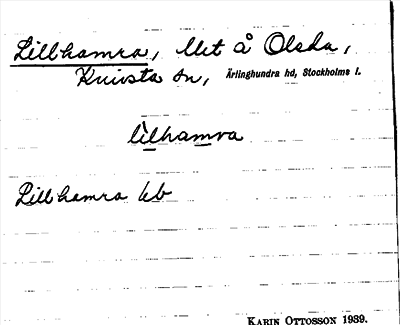 Lillhamra, lht å Olsda,
Knivsta sn, Ärlinghundra hd, Stockholms l.
lìlhamra
Lillhamra kb
KARIN OTTOSSON 1939.